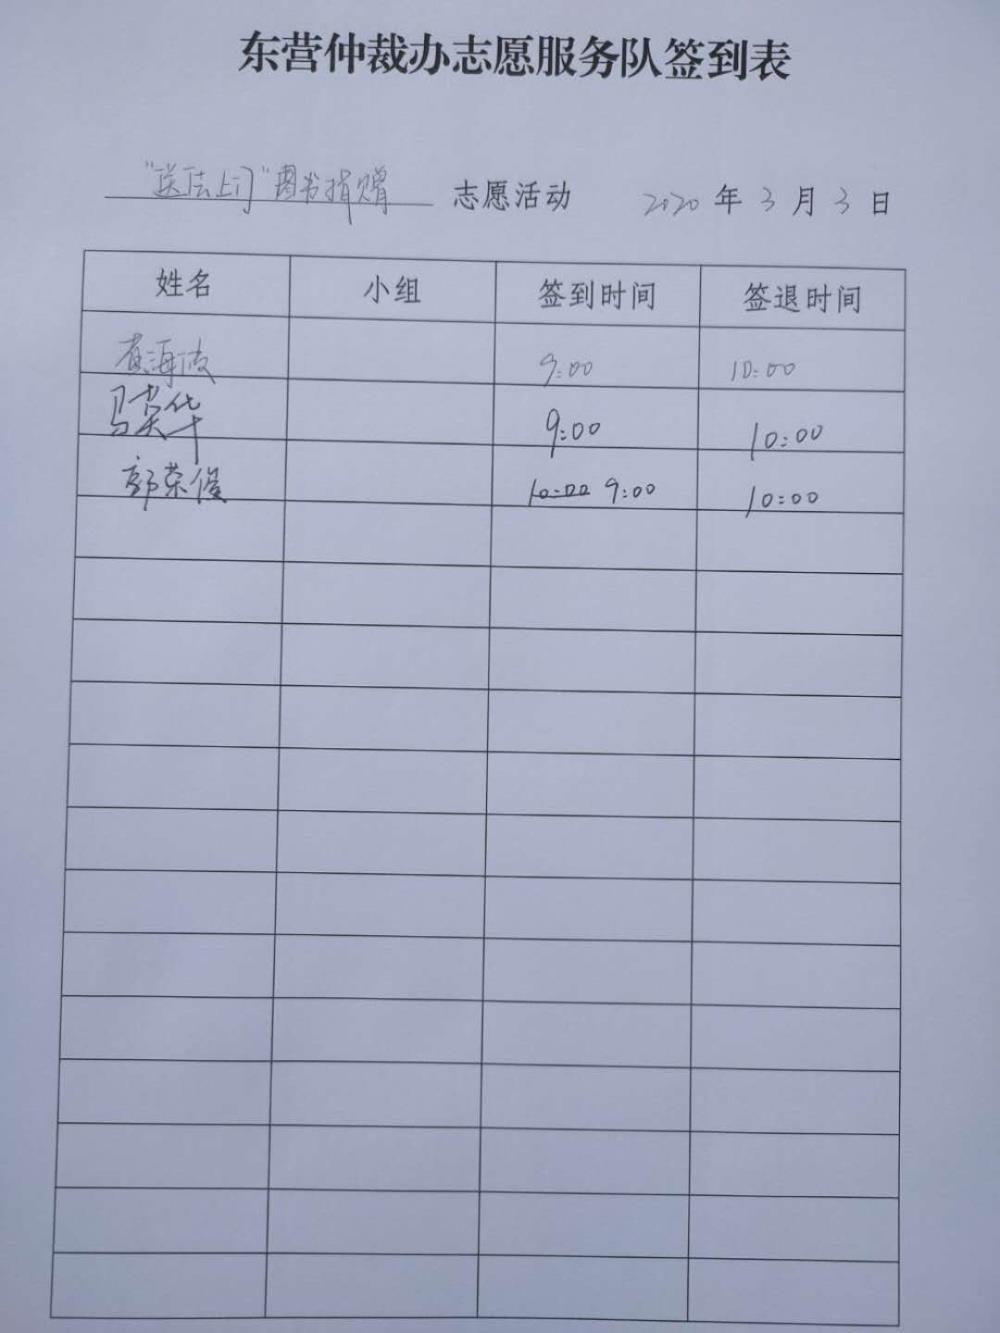 东营仲裁办志愿服务队签到表
“送法上门”图书捐赠 志愿活动 2020 年 3 月 3 日
姓名 小组 签到时间 签退时间
海波 9:00 10:00
马英华 9:00 10:00
郭荣俊 10:00 9:00 10:00